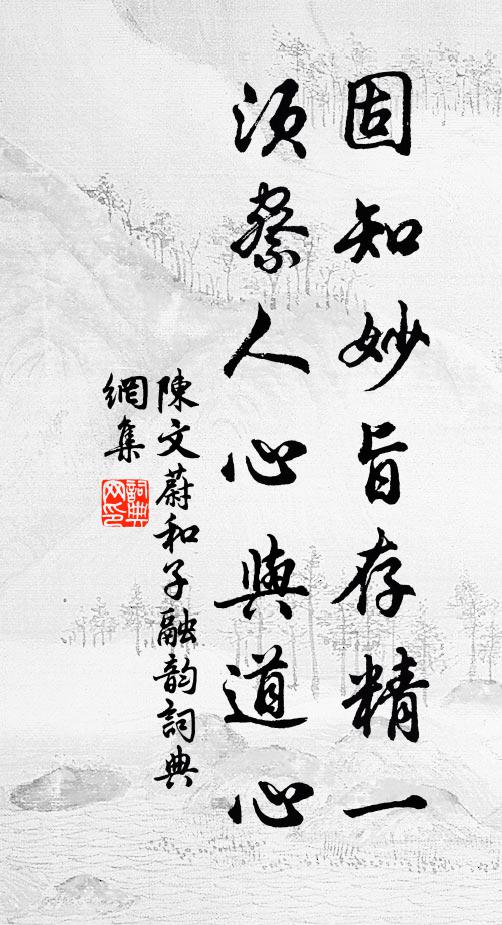 固知妙旨存精一
須察人心與道心
陳文蔚和子融韵詞典
網集
詞典
网印